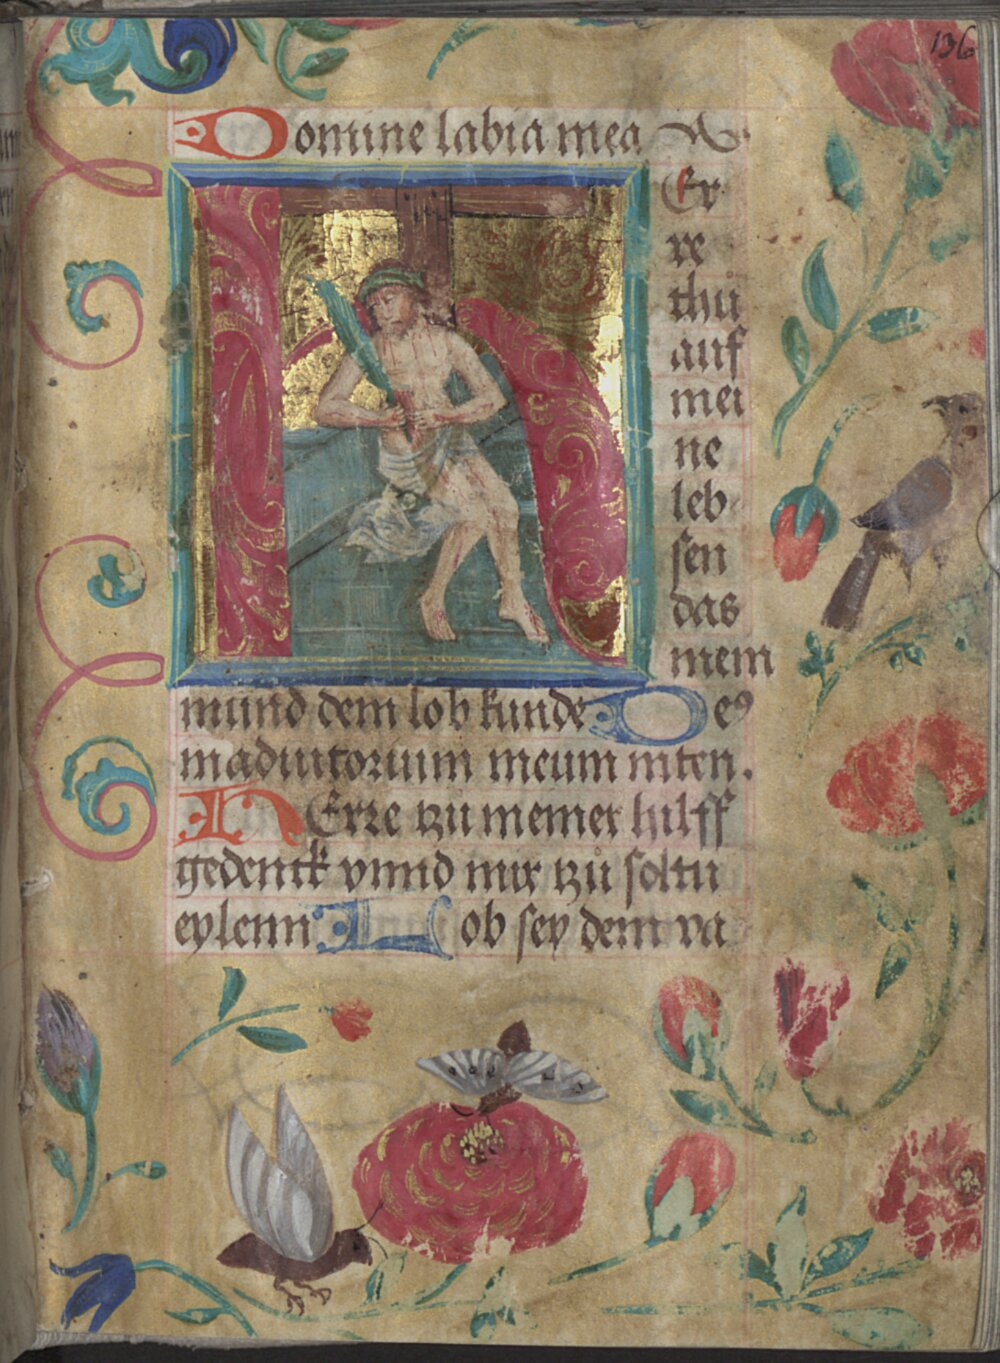 136
Domine labia mea A
Er
re
thu
auf
mei
ne
leb
sen
das
mein
mund dein lob kunde De9
in adiutorium meum inten.
HErre tzu meiner hilff
gedenck vnnd mir tzů soltu
eylenn Lob sey dem va